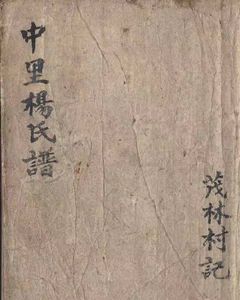 中里楊氏譜
茂林村記